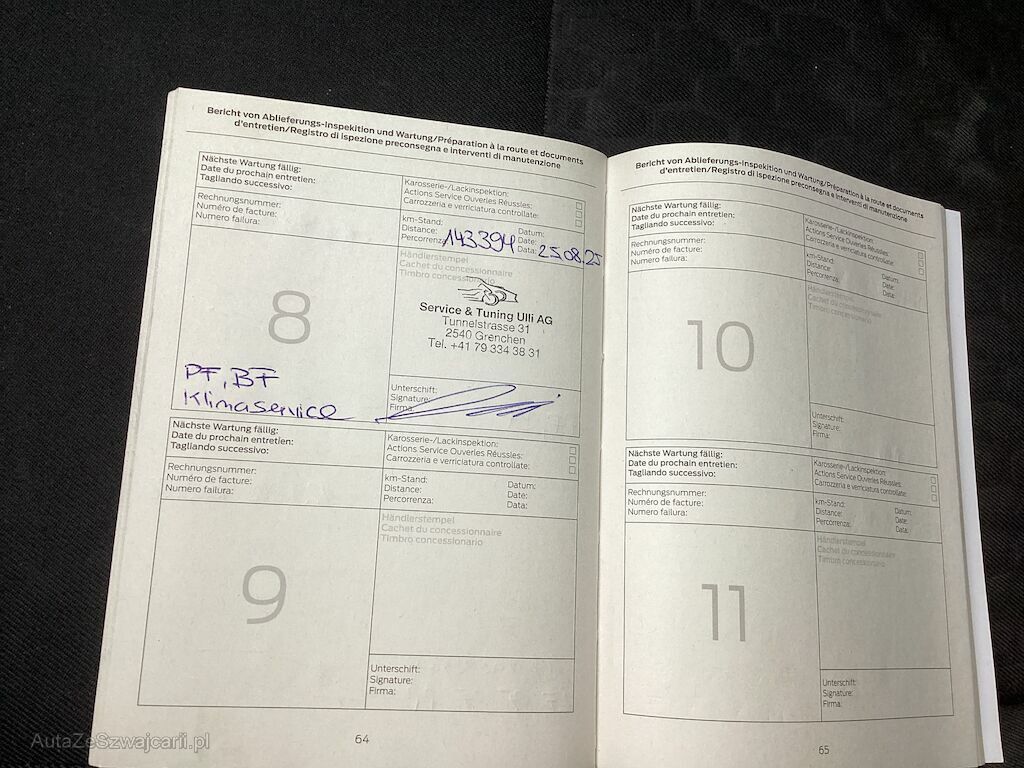 Bericht von Ablieferungs-Inspekition und Wartung/Préparation à la route et documents
d'entretien/Registro di ispezione preconsegna e interventi di manutenzione
Nächste Wartung fällig:
Date du prochain entretien:
Tagliando successivo:
Karosserie-/Lackinspektion:
Actions Service Ouveries Réussles:
Carrozzeria e verriciatura controllate:
Rechnungsnummer:
Numéro de facture:
Numero failura:
km-Stand:
Distance:
Percorrenza:
143394
Datum:
Date:
Data:
25.08.25
8
PF, BF
Klimaservice
Händlerstempel
Cachet du concessionnaire
Timbro concessionario
Service & Tuning Ulli AG
Tunnelstrasse 31
2540 Grenchen
Tel. +41 79 334 38 31
Unterschift:
Signature:
Firma:
Nächste Wartung fällig:
Date du prochain entretien:
Tagliando successivo:
Karosserie-/Lackinspektion:
Actions Service Ouveries Réussles:
Carrozzeria e verriciatura controllate:
Rechnungsnummer:
Numéro de facture:
Numero failura:
km-Stand:
Distance:
Percorrenza:
Datum:
Date:
Data:
9
Händlerstempel
Cachet du concessionnaire
Timbro concessionario
Unterschift:
Signature:
Firma:
64
Bericht von Ablieferungs-Inspekition und Wartung/Préparation à la route et documents
d'entretien/Registro di ispezione preconsegna e interventi di manutenzione
Nächste Wartung fällig:
Date du prochain entretien:
Tagliando successivo:
Karosserie-/Lackinspektion:
Actions Service Ouveries Réussles:
Carrozzeria e verriciatura controllate:
Rechnungsnummer:
Numéro de facture:
Numero failura:
km-Stand:
Distance:
Percorrenza:
Datum:
Date:
Data:
10
Händlerstempel
Cachet du concessionnaire
Timbro concessionario
Unterschift:
Signature:
Firma:
Nächste Wartung fällig:
Date du prochain entretien:
Tagliando successivo:
Karosserie-/Lackinspektion:
Actions Service Ouveries Réussles:
Carrozzeria e verriciatura controllate:
Rechnungsnummer:
Numéro de facture:
Numero failura:
km-Stand:
Distance:
Percorrenza:
Datum:
Date:
Data:
11
Händlerstempel
Cachet du concessionnaire
Timbro concessionario
Unterschift:
Signature:
Firma:
65
AutaZeSzwajcarii.pl